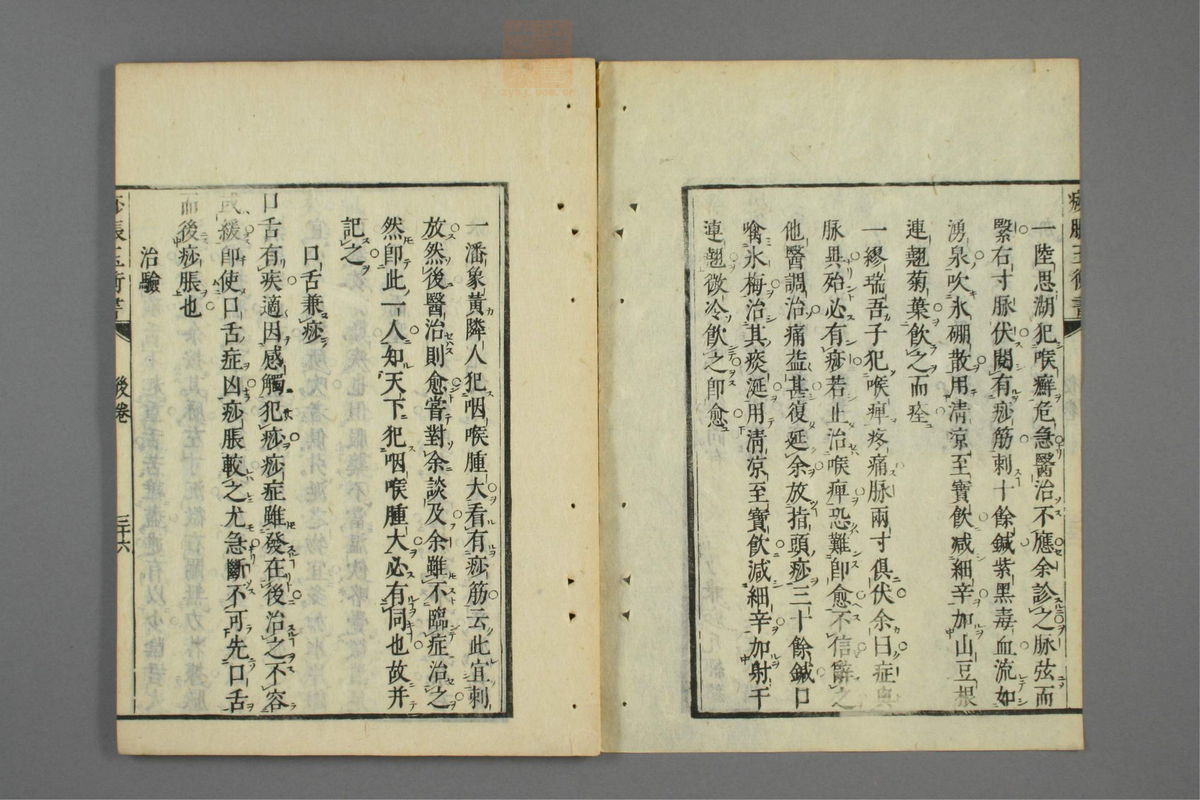 痧脹玉衡書
一陸思湖犯喉癬危急醫治不應余診之脉弦而
緊右寸脉伏閱有痧筋刺十餘鍼紫黑毒血流如
湧泉吹氷硼散用清凉至寶飲减細辛加山豆根
連翹菊葉飲之而痊
一繆瑞吾子犯喉痺疼痛脉兩寸俱伏余曰症與
脉異殆必有痧若止治喉痺恐難即愈不信辭之
他醫調治痛益甚復延余放指頭痧三十餘鍼口
噙氷梅治其痰涎用清凉至寶飲減細辛加射干
連翹微冷飲之即愈
一潘象黃隣人犯咽喉腫大看有痧筋云此宜刺
放然後醫治則愈嘗對余談及余雖不臨症治之
然即此一人知天下犯咽喉腫大必有同也故并
記之
口舌兼痧
口舌有疾適因感觸犯痧痧症雖發在後治之不容
或緩即使口舌症凶痧脹較之尤急斷不可先口舌
而後痧脹也
治驗
痧脹玉衡書
後卷
三十六